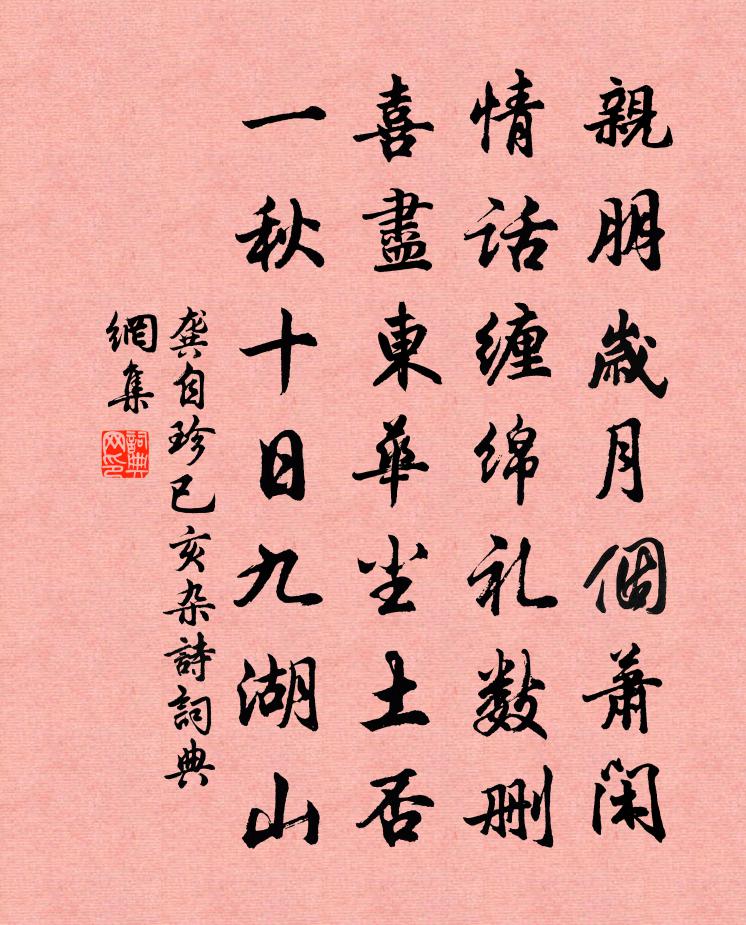 親朋歲月個蕭閑
情话缠绵礼数删
喜盡東華尘土否
一秋十日九湖山
龚自珍已亥杂詩詞典
網集
詞典网印